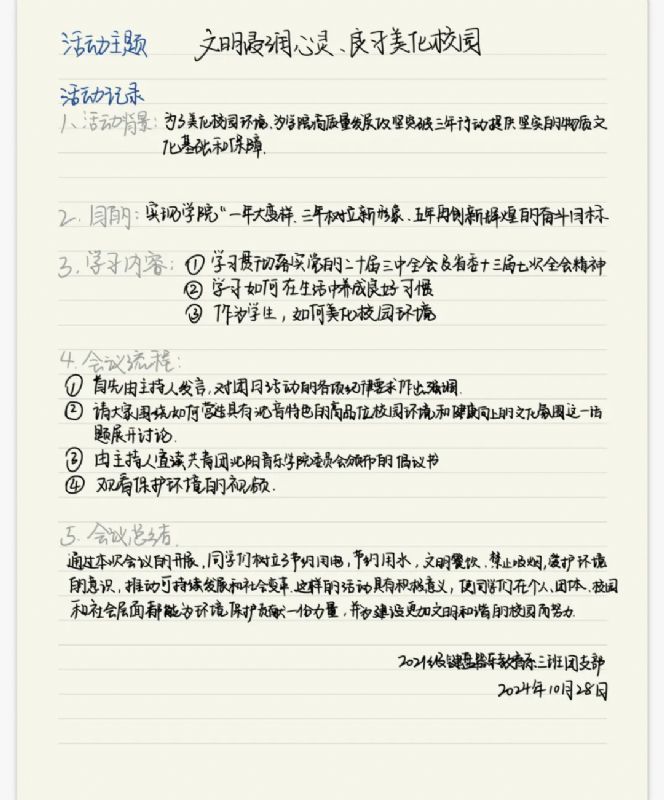 活动主题 文明浸润心灵、良习美化校园
活动记录
1、活动背景: 为了美化校园环境,为学院高质量发展攻坚突破三年行动提供坚实的物质文
化基础和保障.
2. 目的: 实现学院“一年大变样、三年树立新形象、五年再创新辉煌的奋斗目标
3. 学习内容: ① 学习贯彻落实党的二十届三中全会及省委十三届七次全会精神
② 学习如何在生活中养成良好习惯
③ 作为学生,如何美化校园环境
4. 会议流程:
① 首先由主持人发言,对团日活动的各项纪律要求作出强调.
② 请大家围绕如何营造具有沈音特色的高品位校园环境和健康向上的文化氛围这一话
题展开讨论.
③ 由主持人宣读共青团沈阳音乐学院委员会颁布的倡议书
④ 观看保护环境的视频.
5. 会议总结
通过本次会议的开展,同学们树立了节约用电,节约用水,文明餐饮、禁止吸烟,爱护环境
的意识,推动可持续发展和社会变革.这样的活动具有积极意义,使同学们在个人、团体、校园
和社会层面都能为环境保护贡献一份力量,并为建设更加文明和谐的校园而努力.
2021级键盘器乐教育系三班团支部
2024年10月28日